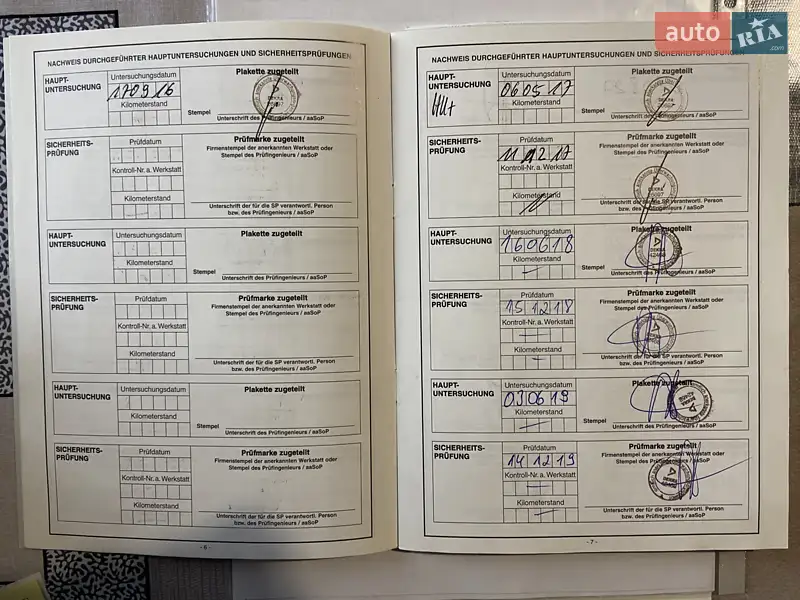 auto RIA .com
NACHWEIS DURCHGEFÜHRTER HAUPTUNTERSUCHUNGEN UND SICHERHEITSPRÜFUNGEN
HAUPT-
UNTERSUCHUNG
Untersuchungsdatum
170916
Kilometerstand
Plakette zugeteilt
Stempel
Unterschrift des Prüfingenieurs / aaSoP
SICHERHEITS-
PRÜFUNG
Prüfdatum
Kontroll-Nr. a. Werkstatt
Kilometerstand
Prüfmarke zugeteilt
Firmenstempel der anerkannten Werkstatt oder
Stempel des Prüfingenieurs / aaSoP
Unterschrift der für die SP verantwortl. Person
bzw. des Prüfingenieurs / aaSoP
HAUPT-
UNTERSUCHUNG
Untersuchungsdatum
Kilometerstand
Plakette zugeteilt
Stempel
Unterschrift des Prüfingenieurs / aaSoP
SICHERHEITS-
PRÜFUNG
Prüfdatum
Kontroll-Nr. a. Werkstatt
Kilometerstand
Prüfmarke zugeteilt
Firmenstempel der anerkannten Werkstatt oder
Stempel des Prüfingenieurs / aaSoP
Unterschrift der für die SP verantwortl. Person
bzw. des Prüfingenieurs / aaSoP
HAUPT-
UNTERSUCHUNG
Untersuchungsdatum
Kilometerstand
Plakette zugeteilt
Stempel
Unterschrift des Prüfingenieurs / aaSoP
SICHERHEITS-
PRÜFUNG
Prüfdatum
Kontroll-Nr. a. Werkstatt
Kilometerstand
Prüfmarke zugeteilt
Firmenstempel der anerkannten Werkstatt oder
Stempel des Prüfingenieurs / aaSoP
Unterschrift der für die SP verantwortl. Person
bzw. des Prüfingenieurs / aaSoP
- 6 -
NACHWEIS DURCHGEFÜHRTER HAUPTUNTERSUCHUNGEN UND SICHERHEITSPRÜFUNGEN
HAUPT-
UNTERSUCHUNG
Untersuchungsdatum
060517
Kilometerstand
Plakette zugeteilt
DEKRA
Stempel
Unterschrift des Prüfingenieurs / aaSoP
SICHERHEITS-
PRÜFUNG
Prüfdatum
Kontroll-Nr. a. Werkstatt
Kilometerstand
Prüfmarke zugeteilt
Firmenstempel der anerkannten Werkstatt oder
Stempel des Prüfingenieurs / aaSoP
DEKRA
Unterschrift der für die SP verantwortl. Person
bzw. des Prüfingenieurs / aaSoP
HAUPT-
UNTERSUCHUNG
Untersuchungsdatum
160618
Kilometerstand
Plakette zugeteilt
DEKRA
Stempel
Unterschrift des Prüfingenieurs / aaSoP
SICHERHEITS-
PRÜFUNG
Prüfdatum
151218
Kontroll-Nr. a. Werkstatt
Kilometerstand
Prüfmarke zugeteilt
Firmenstempel der anerkannten Werkstatt oder
Stempel des Prüfingenieurs / aaSoP
DEKRA
Unterschrift der für die SP verantwortl. Person
bzw. des Prüfingenieurs / aaSoP
HAUPT-
UNTERSUCHUNG
Untersuchungsdatum
030619
Kilometerstand
Plakette zugeteilt
DEKRA
Stempel
Unterschrift des Prüfingenieurs / aaSoP
SICHERHEITS-
PRÜFUNG
Prüfdatum
141219
Kontroll-Nr. a. Werkstatt
Kilometerstand
Prüfmarke zugeteilt
Firmenstempel der anerkannten Werkstatt oder
Stempel des Prüfingenieurs / aaSoP
DEKRA
Unterschrift der für die SP verantwortl. Person
bzw. des Prüfingenieurs / aaSoP
- 7 -